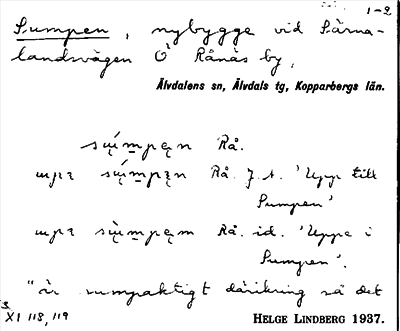 1-2
Sumpen, nybygge vid Särna-
landsvägen Ö Rånäs by,
Älvdalens sn, Älvdals tg, Kopparbergs län.
Rå.
Rå. J. A. 'Upp till
Sumpen'
Rå. id. 'Uppe i
Sumpen'.
"är sumpaktigt däikring så det
XI 118, 119
HELGE LINDBERG 1937.